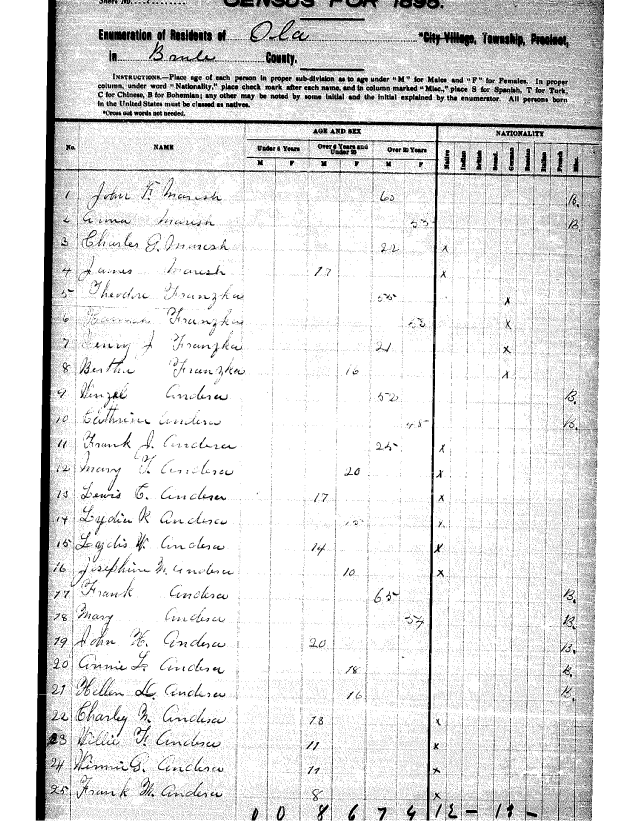 CENSUS FOR 1895.
Enumeration of Residents of Ola "City Village, Township, Precinct,
in Brule County.
INSTRUCTIONS.—Place age of each person in proper sub-division as to age under "M" for Males and "F" for Females. In proper
column, under word "Nationality," place check mark after each name, and in column marked "Misc.," place S for Spanish, T for Turk,
C for Chinese, B for Bohemian; any other may be noted by some initial and the initial explained by the enumerator. All persons born
in the United States must be classed as natives.
*Cross out words not needed.
AGE AND SEX NATIONALITY
No. NAME Under 6 Years Over 6 Years and Under 20 Over 20 Years
M F M F M F Native Indian French Misc.
1 John F. Maresh 60 B.
2 Anna Maresh 53 B.
3 Charles G. Maresh 22 x
4 James Maresh 17 x
5 Theodre Franzka 55 x
6 Franzka 53 x
7 Henry J Franzka 21 x
8 Bertha Franzka 16 x
9 Winzel Andera 52 B.
10 Cathrine Andera 45 B.
11 Frank J. Andera 25 x
12 Mary F. Andera 20 x
13 Lewis C. Andera 17 x
14 Lydia R Andera x
15 Andera 14 x
16 Josephine M. Andera 10 x
17 Frank Andera 65 B.
18 Mary Andera B.
19 John H. Andera 20 B.
20 Annie L. Andera 18 B.
21 Hellen Andera 16 B.
22 Charley Andera 13 x
23 Willie F. Andera 11 x
24 Andera 11 x
25 Frank M. Andera 8 x
0 0 8 6 7 4 12 - 1 -